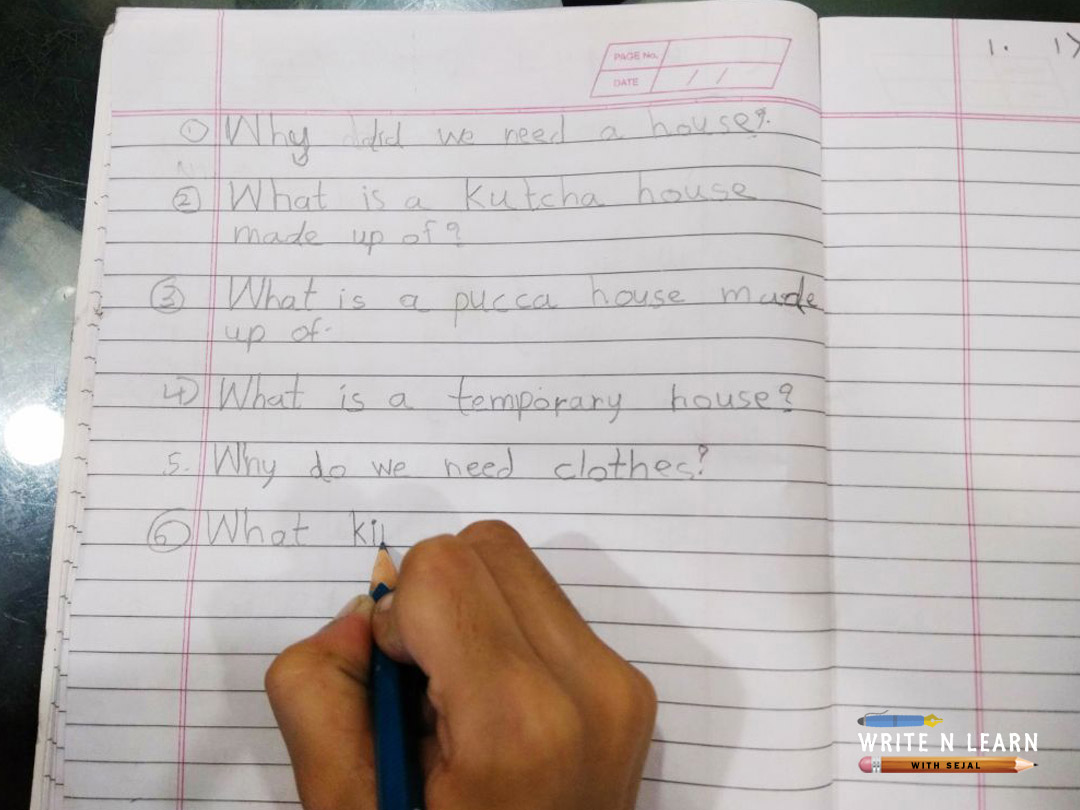 PAGE No.
DATE / /
1. 1)
① Why did we need a house?
② What is a kutcha house
made up of?
③ What is a pucca house made
up of.
4) What is a temporary house?
5. Why do we need clothes?
⑥ What ki
WRITE N LEARN
WITH SEJAL